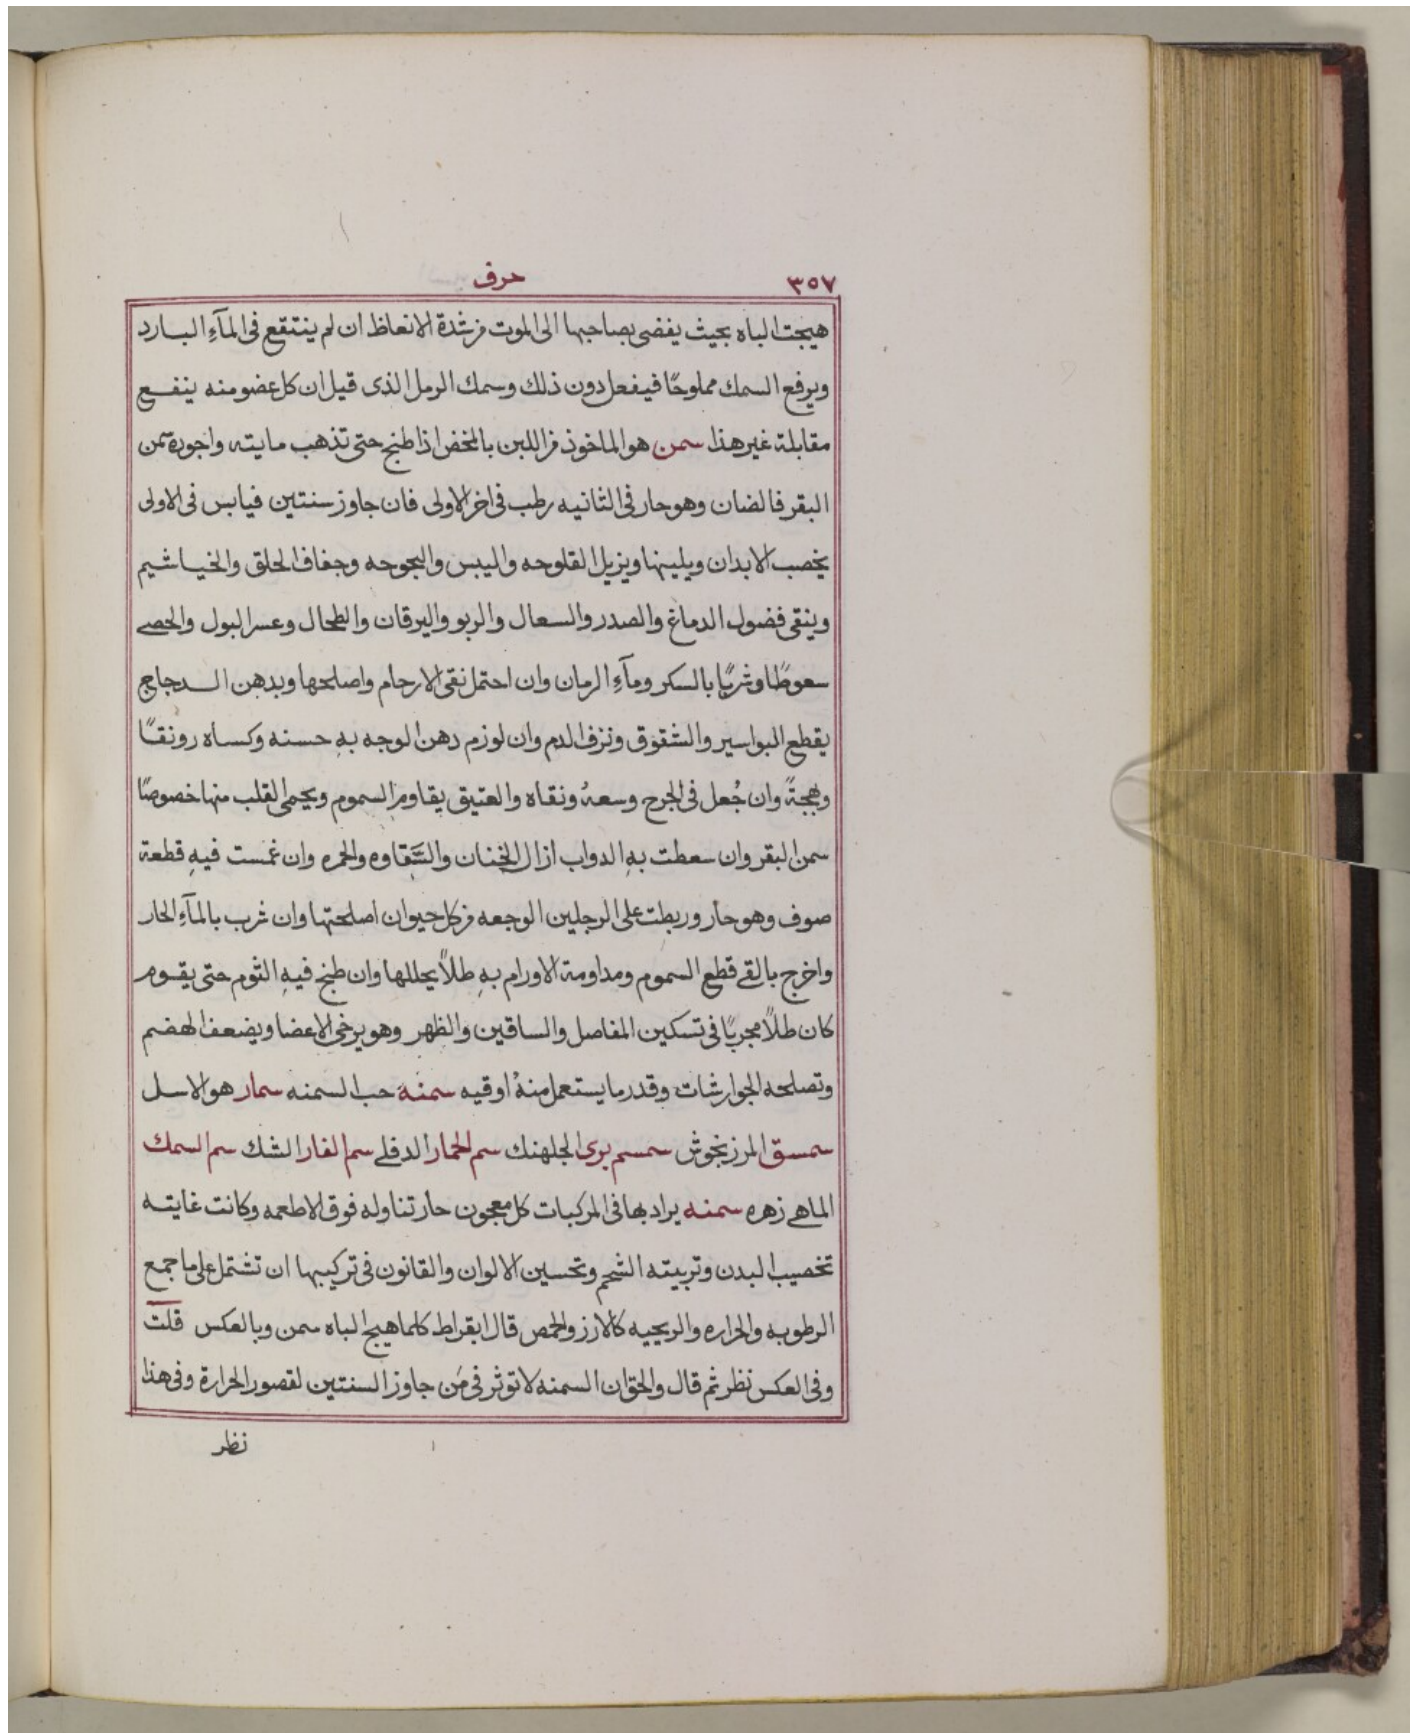 ٣٥٧ حرف
هيجت الباه بحيث يفضى بصاحبها الى الموت من شدة الانعاظ ان لم ينتقع فى المآءِ البارد
ويرفع السمك مملوحًا فيفعل دون ذلك وسمك الرمل الذى قيل ان كل عضو منه ينفع
مقابلة غير هذا سمن هو الماخوذ من اللبن بالمخض اذا طبخ حتى تذهب مايته واجوده سمن
البقر فالضان وهو حار فى الثانيه رطب فى اخر الاولى فان جاوز سنتين فيابس فى الاولى
يخصب الابدان ويلينها ويزيل القلوحه واليبس والبحوحه وجفاف الحلق والخياشيم
وينقى فضول الدماغ والصدر والسعال والربو واليرقان والطحال وعسر البول والحصى
سعوطًا وشربًا بالسكر ومآءِ الرمان وان احتمل نقى الارحام واصلحها وبدهن الدجاج
يقطع البواسير والشقوق ونزف الدم وان لوزم دهن الوجه بهِ حسنه وكساه رونقًا
وبهجةً وان جُعل فى الجرح وسعهُ ونقاه والعتيق يقاوم السموم ويحمى القلب منها خصوصًا
سمن البقر وان سعطت بهِ الدواب ازال الخنان والسَّقاوه والحمره وان غمست فيهِ قطعة
صوف وهو حار وربطت على الرجلين الوجعه من كل حيوان اصلحتها وان شرب بالمآءِ الحار
واخرج بالقى قطع السموم ومداومة الاورام بهِ طلاً يحللها وان طبخ فيهِ الثوم حتى يقوم
كان طلاً مجربًا فى تسكين المفاصل والساقين والظهر وهو يرخى الاعضا ويضعف الهضم
وتصلحه الجوارشات وقدر ما يستعمل منهُ اوقيه سمنة حب السمنه سمار هو الاسل
سمسق المرزنجوش سمسم برى الجلهنك سم الحمار الدفلى سم الفار الشك سم السمك
الماهى زهره سمنه يراد بها فى المركبات كل معجون حار تناوله فوق الاطعمه وكانت غايته
تخصيب البدن وتربيته الشحم وتحسين الالوان والقانون فى تركيبها ان تشتمل على ما جمع
الرطوبه والحراره والريحيه كالارز والحمص قال ابقراط كلما هيج الباه سمن وبالعكس قلت
وفى العكس نظر ثم قال والحق ان السمنه لا توثر فى مَن جاوز السنتين لقصور الحرارة وفى هذا
نظر